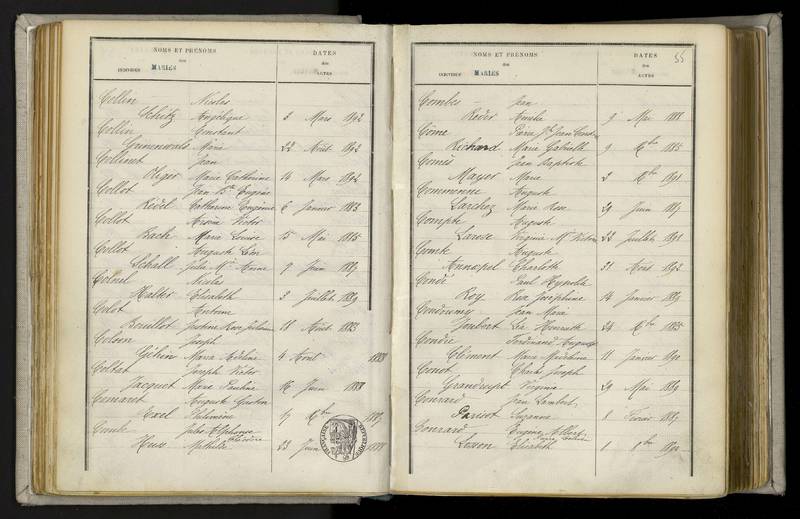 NOMS ET PRÉNOMS
des
INDIVIDUS MARIÉS
DATES
des
ACTES
Collin Nicolas
Schitz Angélique 3 Mars 1892
Collin Constant
Grunenwald Marie 22 Août 1892
Collinet Jean
Higer Marie Catherine 14 Mars 1892
Collot Jean Bte Eugène
Rédel Catherine Eugénie 6 Janvier 1883
Collot Victor
Bach Marie Louise 15 Mai 1885
Collot Auguste Léon
Schall Julie Mie Anne 9 Juin 1887
Colnel Nicolas
Halter Elisabeth 3 Juillet 1889
Colot Antoine
Rouillot Justine Rose 18 Août 1883
Colson Joseph
Marie 4 Août 1888
Coltat Joseph Victor
Jacquet Marie Pauline 16 Juin 1888
Auguste
Exel Philomène 17 1887
Comb Jules Alphonse
Huss Mathilde 23 Juin 1888
NOMS ET PRÉNOMS
des
INDIVIDUS MARIÉS
DATES
des
ACTES
55
Combes Jean
Reder Amélie 9 Mai 1888
Côme Pierre Jean
Richard Marie Gabrielle 9 Xbre 1885
Comès Jean Baptiste
Mayer Marie 2 Xbre 1891
Commenne Auguste
Larchez Marie Rose 29 Juin 1887
Compte Auguste
Larose Virginie Mie Victoire 22 Juillet 1891
Comte Auguste
Annopel Charlotte 31 Août 1892
Condé Paul Hypolite
Roy Rose Joséphine 14 Janvier 1889
Jean Marie
Joubert Léa Henriette 24 Xbre 1885
Condre Ferdinand Auguste
Clément Marie 11 Janvier 1890
Conot Charles Joseph
Grandrupt Virginie 29 Mai 1889
Conrard Jean Lambert
Pariset Suzanne 8 Février 1887
Conrard Eugène Albert
Lesson Elisabeth 1 8bre 1892